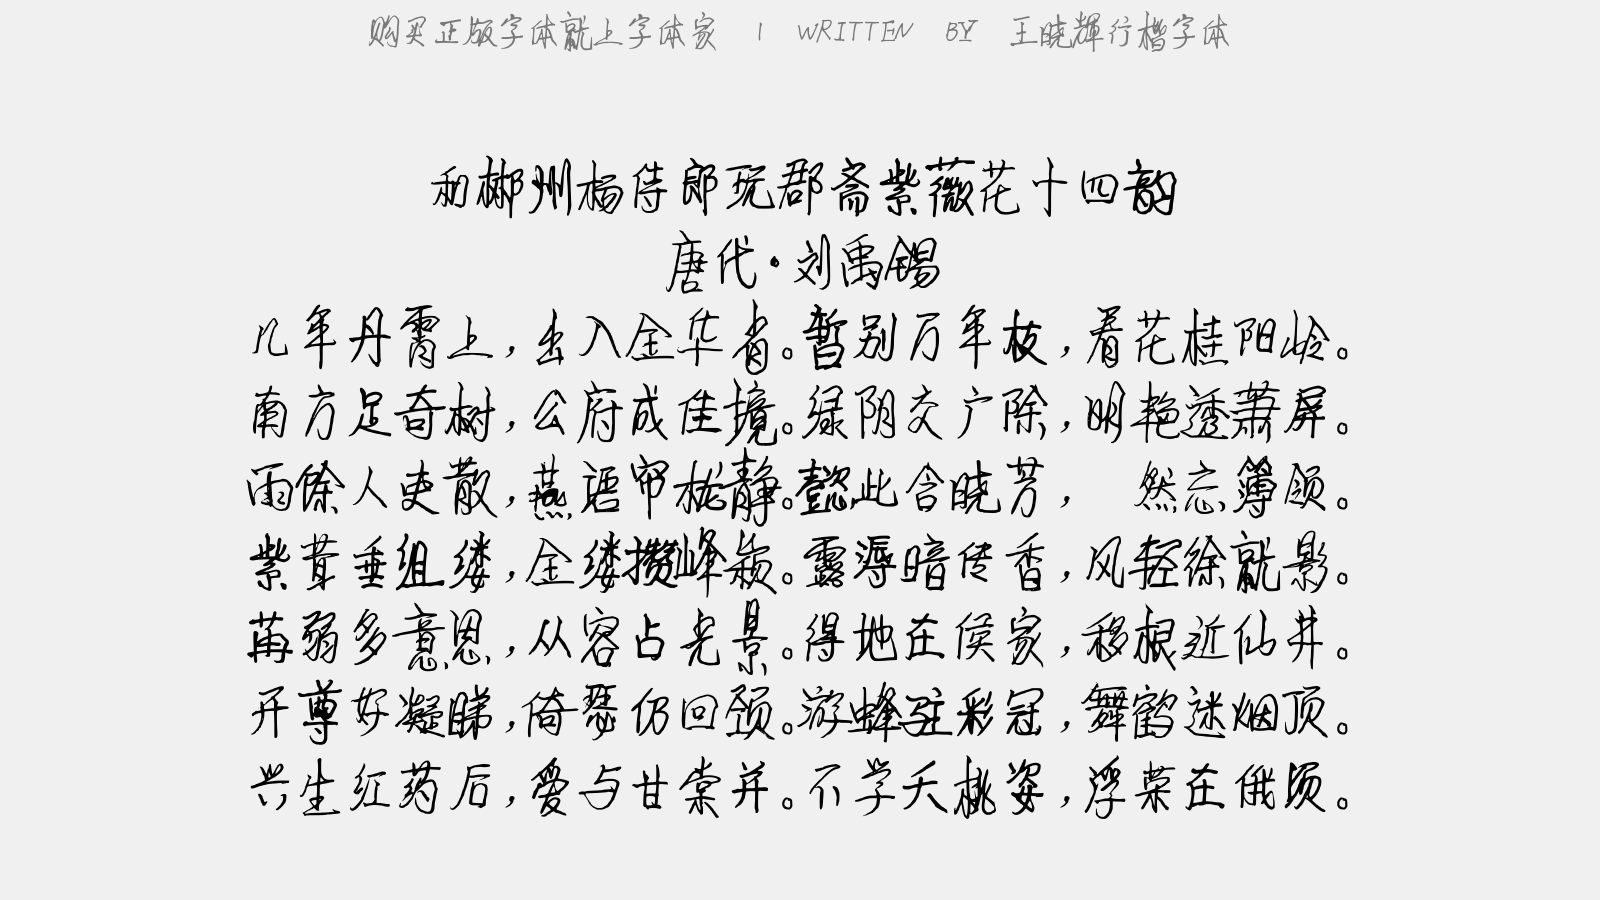 购买正版字体就上字体家 | WRITTEN BY 王晓辉行楷字体
和郴州杨侍郎玩郡斋紫薇花十四韵
唐代·刘禹锡
几年丹霄上，出入金华省。暂别万年枝，看花桂阳岭。
南方足奇树，公府成佳境。绿阴交广除，明艳透萧屏。
雨馀人吏散，燕语帘栊静。懿此含晓芳， 然忘簿领。
紫茸垂组缕，金缕攒峰颖。露溽暗传香，风轻徐就影。
苒弱多意思，从容占光景。得地在侯家，移根近仙井。
开尊好凝睇，倚瑟仍回颈。游蜂驻彩冠，舞鹤迷烟顶。
兴生红药后，爱与甘棠并。不学夭桃姿，浮荣在俄顷。